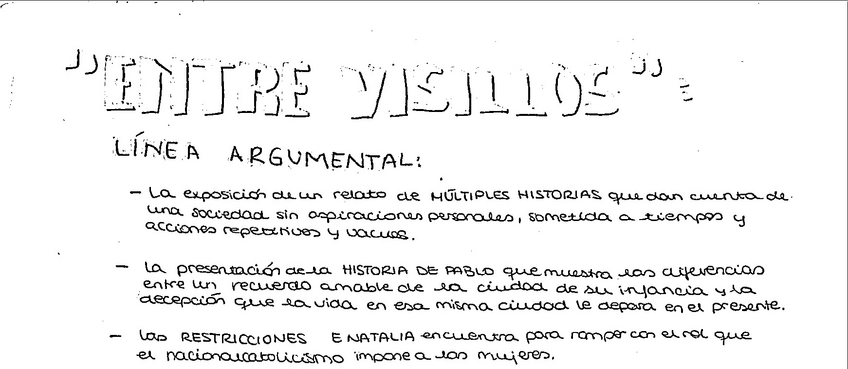 "ENTRE VISILLOS":
LÍNEA ARGUMENTAL:
- La exposición de un relato de MÚLTIPLES HISTORIAS que dan cuenta de
una sociedad sin aspiraciones personales, sometida a tiempos y
acciones repetitivos y vacuos.
- la presentación de la HISTORIA DE PABLO que muestra las diferencias
entre un recuerdo amable de la ciudad de su infancia y la
decepción que la vida en esa misma ciudad le depara en el presente.
- las RESTRICCIONES E NATALIA encuentra para romper con el rol que
el nacionalcatolicismo impone a las mujeres.